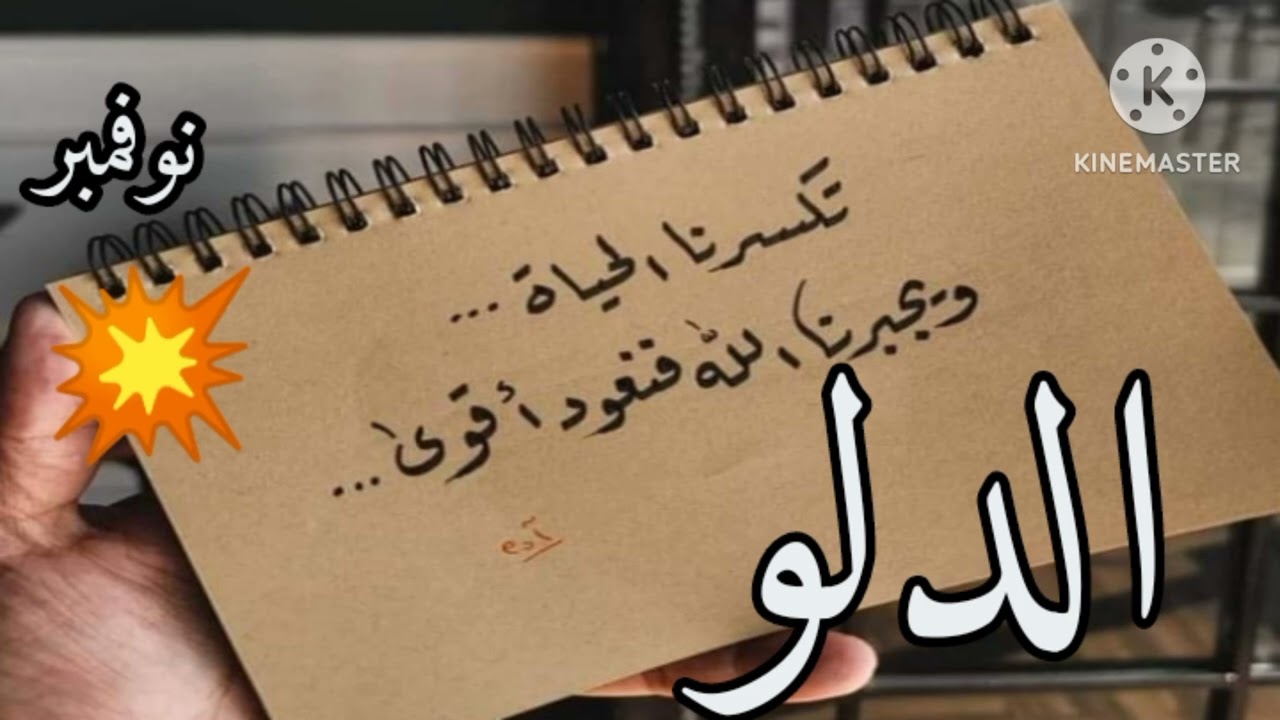 نوفمبر
KINEMASTER
تَكسرنا الحياة ...
ويجبرنا الله فنعود أقوى ...
الدلو